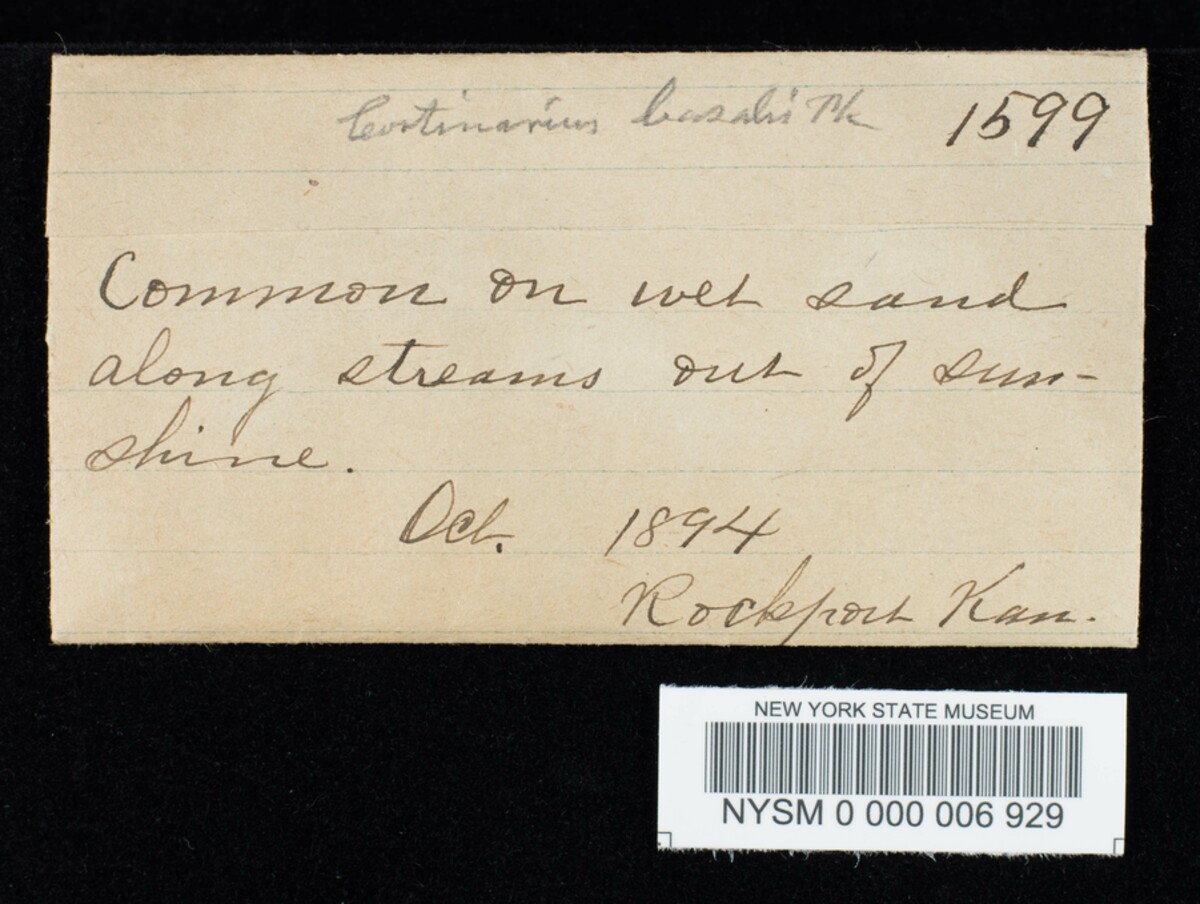 Cortinarius basalis Pk 1599
Common on wet sand
along streams out of sun-
shine.
Oct. 1894
Rockport Kan.
NEW YORK STATE MUSEUM
NYSM 0 000 006 929